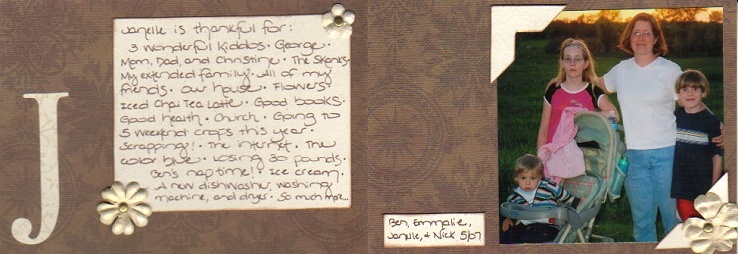 J
Janelle is thankful for:
3 wonderful kiddos · George ·
Mom, Dad, and Christine · The Skanks ·
My extended family · All of my
friends · our house · Flowers ·
Iced Chai Tea Latte · Good books ·
Good health · Church · Going to
5 weekend crops this year ·
Scrapping! · The internet · The
color blue · Losing 30 pounds ·
Ben's nap time! · Ice cream ·
A new dishwasher, washing
machine, and dryer · So much more...
Ben, Emmalie,
Janelle, & Nick 5/07